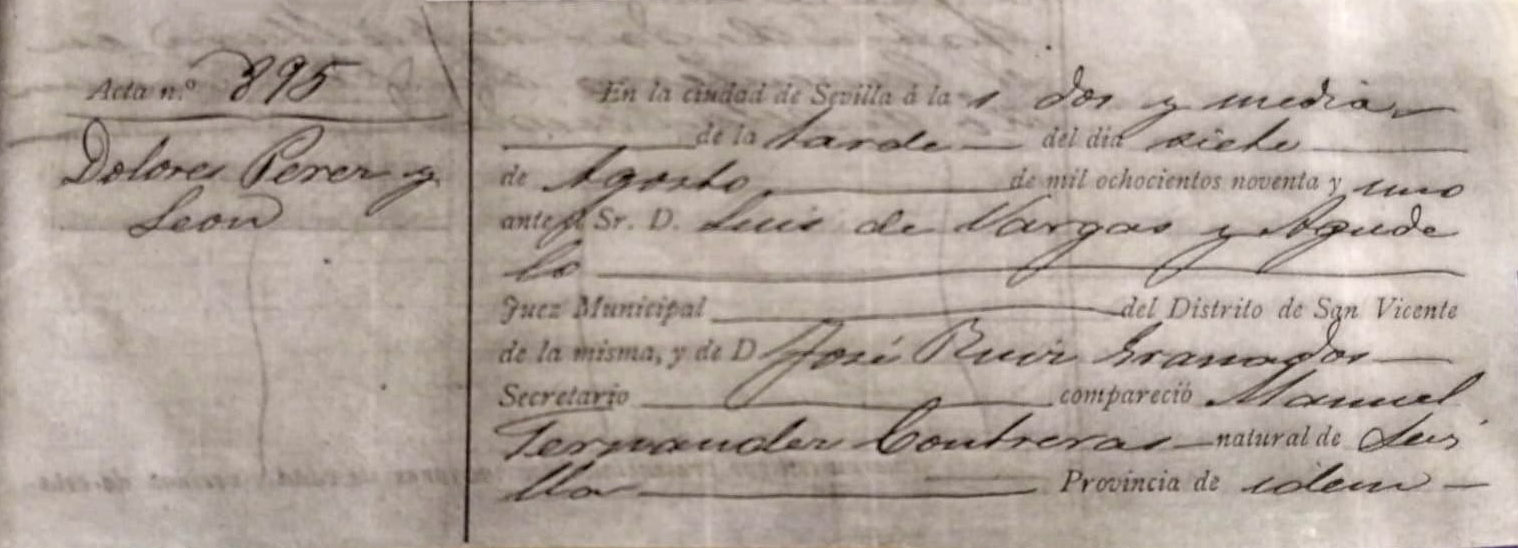 Acta n.º 895
Dolores Perez y
Leon
En la ciudad de Sevilla á las dos y media
de la tarde del dia siete
de Agosto de mil ochocientos noventa y uno
ante el Sr. D. Luis de Vargas y Agude
lo
Juez Municipal del Distrito de San Vicente
de la misma, y de D José Ruiz Granados
Secretario compareció Manuel
Fernandez Contreras natural de Sevi
lla Provincia de idem